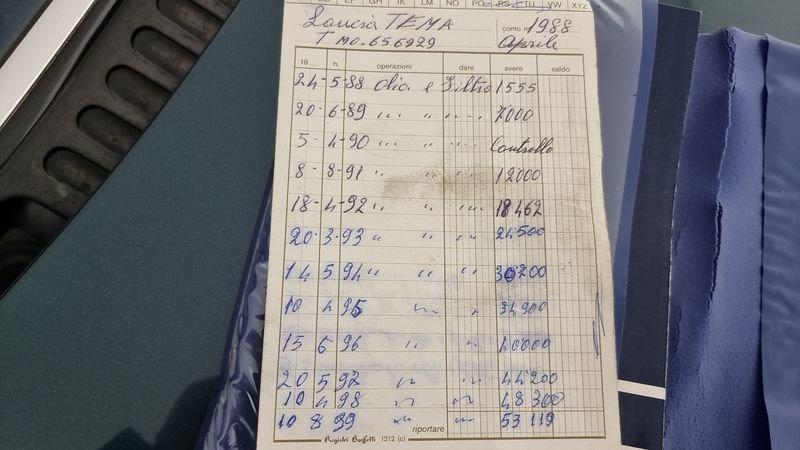 CD EF GH IK LM NO PQ RS TU VW XYZ
Lancia TEMA conto 1988
T MO.656929 Aprile
19 n. operazioni dare avere saldo
24-5-88 Olio e Filtro 1555
20-6-89 " " " 7000
5-4-90 " " " Controllo
8-8-91 " " " 12000
18-4-92 " " " 18462
20-3-93 " " " 24500
14 5 94 " " " 30200
10 4 95 " " 34900
15 6 96 " " 40000
20 5 97 " " 44200
10 4 98 " " 48300
10 8 99 " " 53119
riportare
Registri Buffetti 1212 (c)